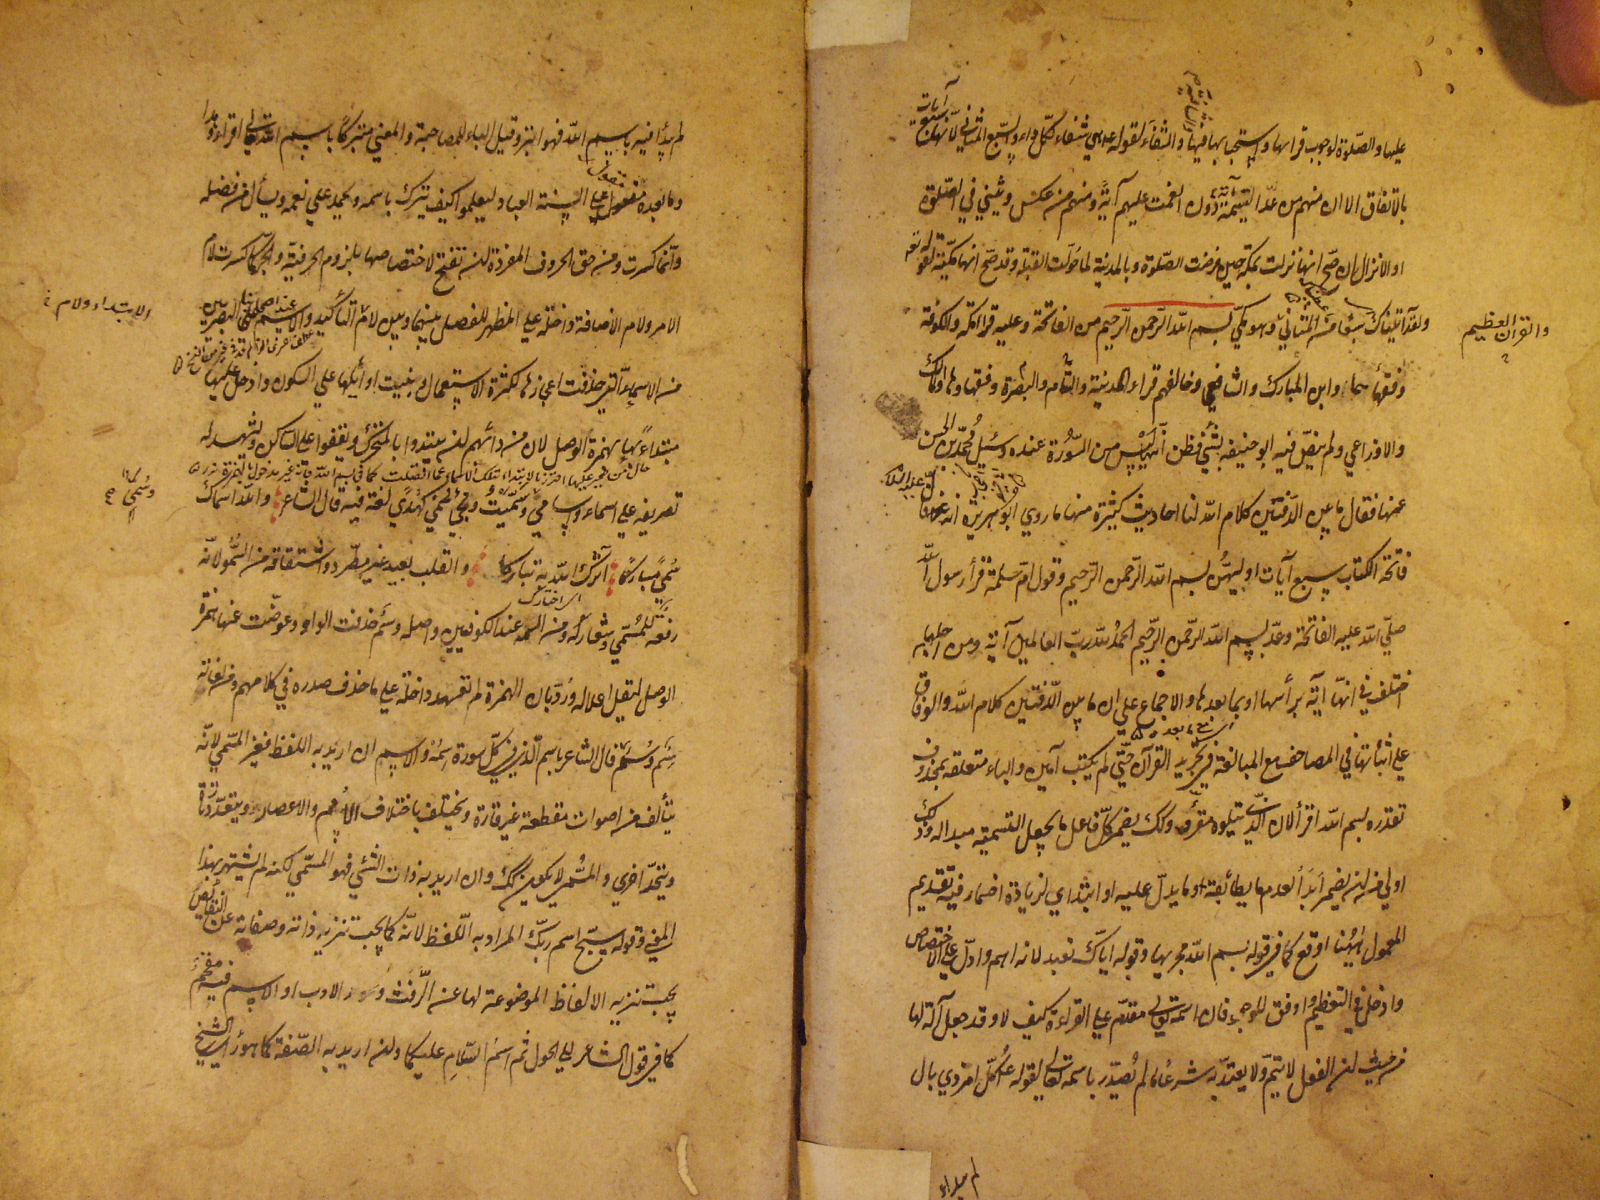 عليها والصلوة لوجوب قراءتها واستحبابها فيها والشفاء لقوله هي شفاء لكل داء والسبع المثاني لانها سبع آيات
والشافية
بالاتفاق الا ان منهم من عد التسمية آية دون انعمت عليهم آية ومنهم من عكس وتثنى في الصلوة
او الانزال ان صح انها نزلت بمكة حين فرضت الصلوة وبالمدينة لما حولت القبلة وقد صح انها مكية لقوله تعه
ولقد آتيناك سبعا من المثاني وهو مكي بسم الله الرحمن الرحيم من الفاتحة وعليه قراء مكة والكوفة
والقرآن العظيم
وفقهاءهما وابن المبارك والشافعي وخالفهم قراء المدينة والشام والبصرة وفقهاؤها ومالك
والاوزاعي ولم ينص فيه ابو حنيفة بشئ فظن انها ليس من السورة عنده وسئل محمد بن الحسن
عنها فقال ما بين الدفتين كلام الله لنا احاديث كثيرة منها ما روى ابو هريرة انه عليه السلام قال
فاتحة الكتاب سبع آيات اوليهن بسم الله الرحمن الرحيم وقول ام سلمة قرأ رسول الله
صلى الله عليه الفاتحة وعد بسم الله الرحمن الرحيم الحمد لله رب العالمين آية ومن اجلها
اختلف في انها آية برأسها او بما بعدها والاجماع على ان ما بين الدفتين كلام الله والوفاق
على اثباتها في المصاحف مع المبالغة في تجريد القرآن حتى لم يكتب آمين والباء متعلقة بمحذوف
تقديره بسم الله اقرأ لان الذي يتلوه مقروء وكذلك يضمر كل فاعل ما يجعل التسمية مبدأ له وذلك
اولى من ان يضمر ابدأ لعدم ما يطابقه او ما يدل عليه او ابتدائي لزيادة اضمار فيه وتقديم
المعمول ههنا اوقع كما في قوله بسم الله مجريها وقوله اياك نعبد لانه اهم وادل على الاختصاص
وادخل في التعظيم واوفق للوجود فان اسمه تعالى مقدم على القراءة كيف لا وقد جعل آلة لها
من حيث ان الفعل لا يتم ولا يعتد به شرعا ما لم يصدر باسمه تعالى لقوله عم كل امر ذي بال
لم يبدأ
لم يبدأ فيه باسم الله فهو ابتر وقيل الباء للمصاحبة والمعنى متبركا باسم الله تعالى اقرأ وهذا
وما بعده مقول على السنة العباد ليعلموا كيف يتبرك باسمه ويحمد على نعمه ويسأل من فضله
وانما كسرت ومن حق الحروف المفردة ان تفتح لاختصاصها بلزوم الحرفية والجر كما كسرت لام
الامر ولام الاضافة داخلة على المظهر للفصل بينهما وبين لام التأكيد والاسم عند اصحابنا البصريين
والابتداء ولام
من الاسماء التي حذفت اعجازها لكثرة الاستعمال وبنيت اوائلها على السكون وادخل عليها
مبتدءا بها همزة الوصل لان من دأبهم ان يبتدوا بالمتحرك ويقفوا على الساكن ويشهد له
تصريفه على اسماء واسامي وسميت ومجئ سمى كهدى لغة فيه قال الشاعر والله اسماك
سمى مباركا آثرك الله به تباركا والقلب بعيد غير مطرد واشتقاقه من السمو لانه
اي اختارك
رفعة للمسمى وشعار له ومن السمة عند الكوفيين واصله وسم حذفت الواو وعوضت عنها همزة
الوصل ليقل اعلاله ورد بان الهمزة لم تعهد داخلة على ما حذف صدره في كلامهم ومن لغاته
سم وسم قال الشاعر باسم الذي في كل سورة سمه والاسم ان اريد به اللفظ فغير المسمى لانه
يتألف من اصوات مقطعة غير قارة ويختلف باختلاف الامم والاعصار ويتعدد تارة
ويتحد اخرى والمسمى لا يكون كذلك وان اريد به ذات الشئ فهو المسمى لكنه لم يشتهر بهذا
المعنى وقوله سبح اسم ربك المراد به اللفظ لانه كما يجب تنزيه ذاته وصفاته عن النقايص
يجب تنزيه الالفاظ الموضوعة لها عن الرفث وسوء الادب او الاسم فيه مقحم
كما في قول الشاعر الى الحول ثم اسم السلام عليكما وان اريد به الصفة كما هو رأي الشيخ